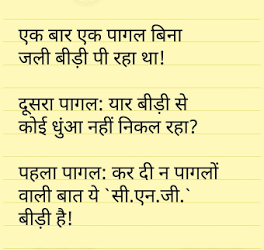 एक बार एक पागल बिना
जली बीड़ी पी रहा था!
दूसरा पागल: यार बीड़ी से
कोई धुंआ नहीं निकल रहा?
पहला पागल: कर दी न पागलों
वाली बात ये `सी.एन.जी.`
बीड़ी है!